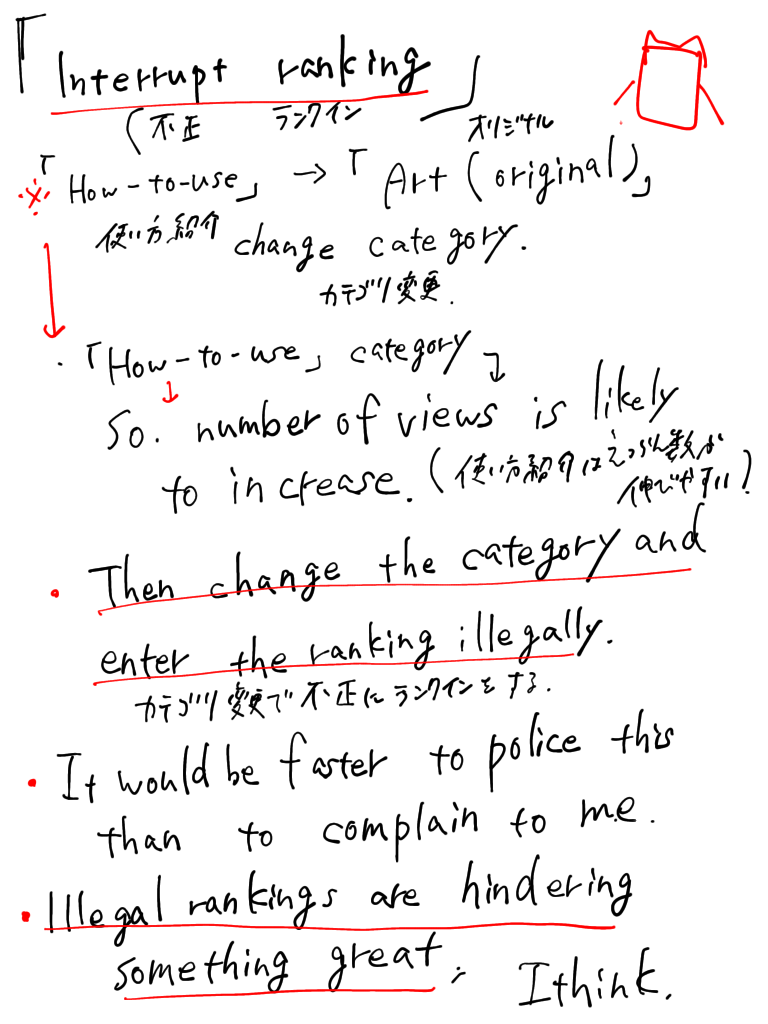 「Interrupt ranking」
(不正 ランクイン
オリジナル
※「How-to-use」→「Art (original)」
使い方紹介
change category.
カテゴリ変更.
・「How-to-use」category
So. number of views is likely
to increase. (使い方紹介はえつらん数が
伸びやすい)
・Then change the category and
enter the ranking illegally.
カテゴリ変更で不正にランクインをする.
・It would be faster to police this
than to complain to me.
・Illegal rankings are hindering
something great; I think.